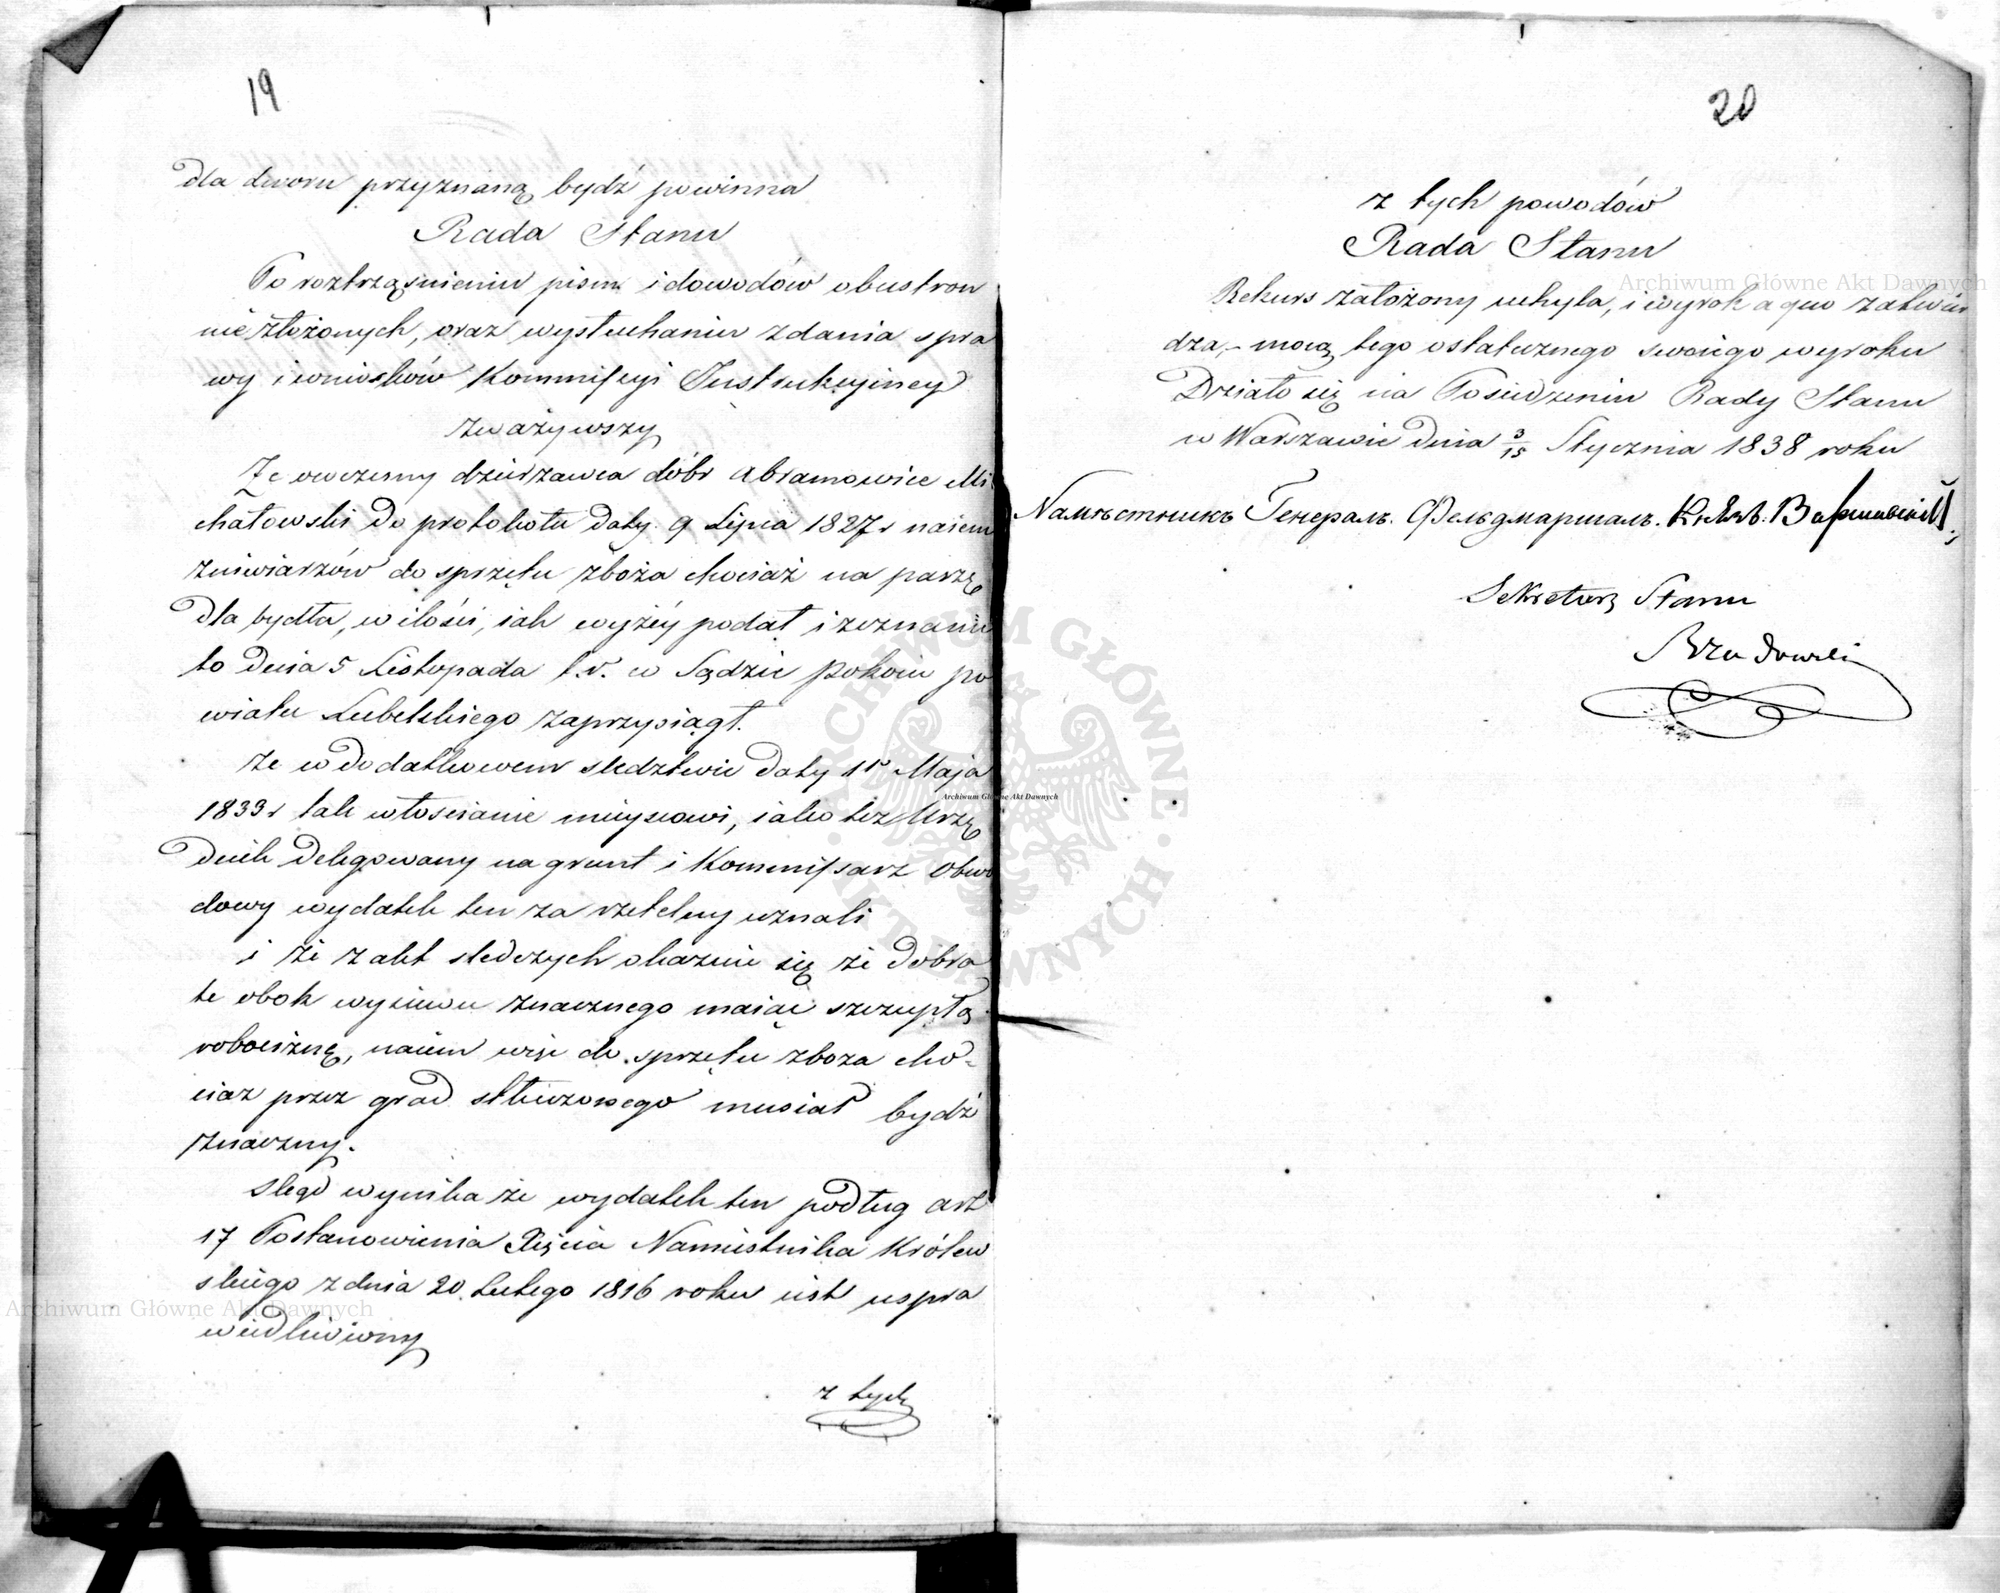 19
dla dworu przyznaną bydź powinna
Rada Stanu
Po roztrząśnieniu pism i dowodów obustron
nie złożonych, oraz wysłuchaniu zdania spra
wy i wniosków Kommissyi Instrukcyiney
zważywszy
Że owczesny dzierzawca dóbr Abramowice Mi
chałowski do protokołu daty 9 Lipca 1827 r naiem
żniwiarzów do sprzętu zboża chociaż na parzę
dla bydła, w ilości, iak wyżéy podał i zeznanie
to dnia 5 Listopada t.r. w Sądzie Pokoiu po
wiatu Lubelskiego zaprzysiągł.
że w dodatkowem śledztwie daty 11 Maja
1833 r tak włościanie mieyscowi, iako też Urzę
dnik delegowany na grunt i Kommissarz Obwo
dowy wydatek ten za rzetelny uznali
i że z akt śledczych okazuie się że dobra
te obok wysiewu znacznego maiąc szczupłą
robociznę, naiem więc do sprzętu zboża cho-
ciaż przez grad stłuczonego musiał bydź
znaczny.
stąd wynika że wydatek ten podług art
17 Postanowienia Xięcia Namiestnika Królew
skiego z dnia 20 Lutego 1816 roku iest uspra
wiedliwiony
z tych
20
z tych powodów
Rada Stanu
Rekurs założony uchyla, i wyrok a quo zatwier
dza,- mocą tego ostatecznego swoiego wyroku
Działo się na Posiedzeniu Rady Stanu
w Warszawie dnia 3/15 Stycznia 1838 roku
Намѣстникъ Генералъ. Фельдмаршалъ. Князь. Варшавскій
Sekretarz Stanu
Brzozowski
Archiwum Główne Akt Dawnych
Archiwum Główne Akt Dawnych
Archiwum Główne Akt Dawnych
ARCHIWUM GŁÓWNE AKT DAWNYCH